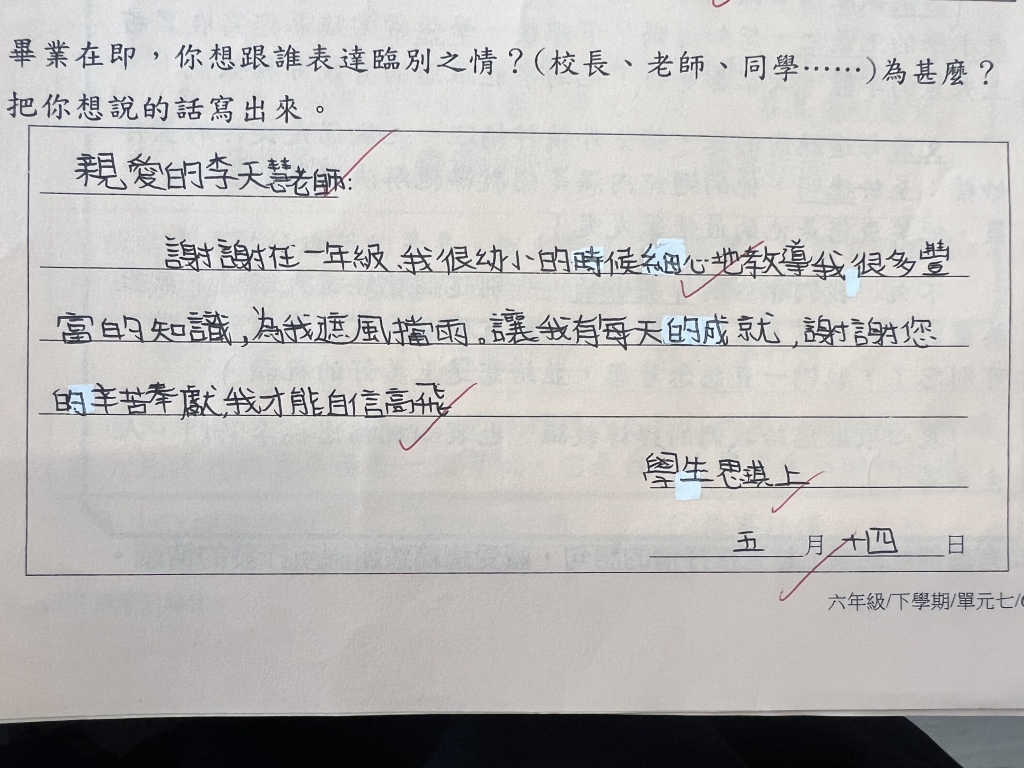 畢業在即，你想跟誰表達臨別之情？(校長、老師、同學……)為甚麼？
把你想說的話寫出來。
親愛的李天慧老師:
謝謝在一年級、我很幼小的時候細心地教導我,很多豐
富的知識,為我遮風擋雨。讓我有每天的成就,謝謝您
的辛苦奉獻,我才能自信高飛
學生思琪上
五月十四日
六年級/下學期/單元七/